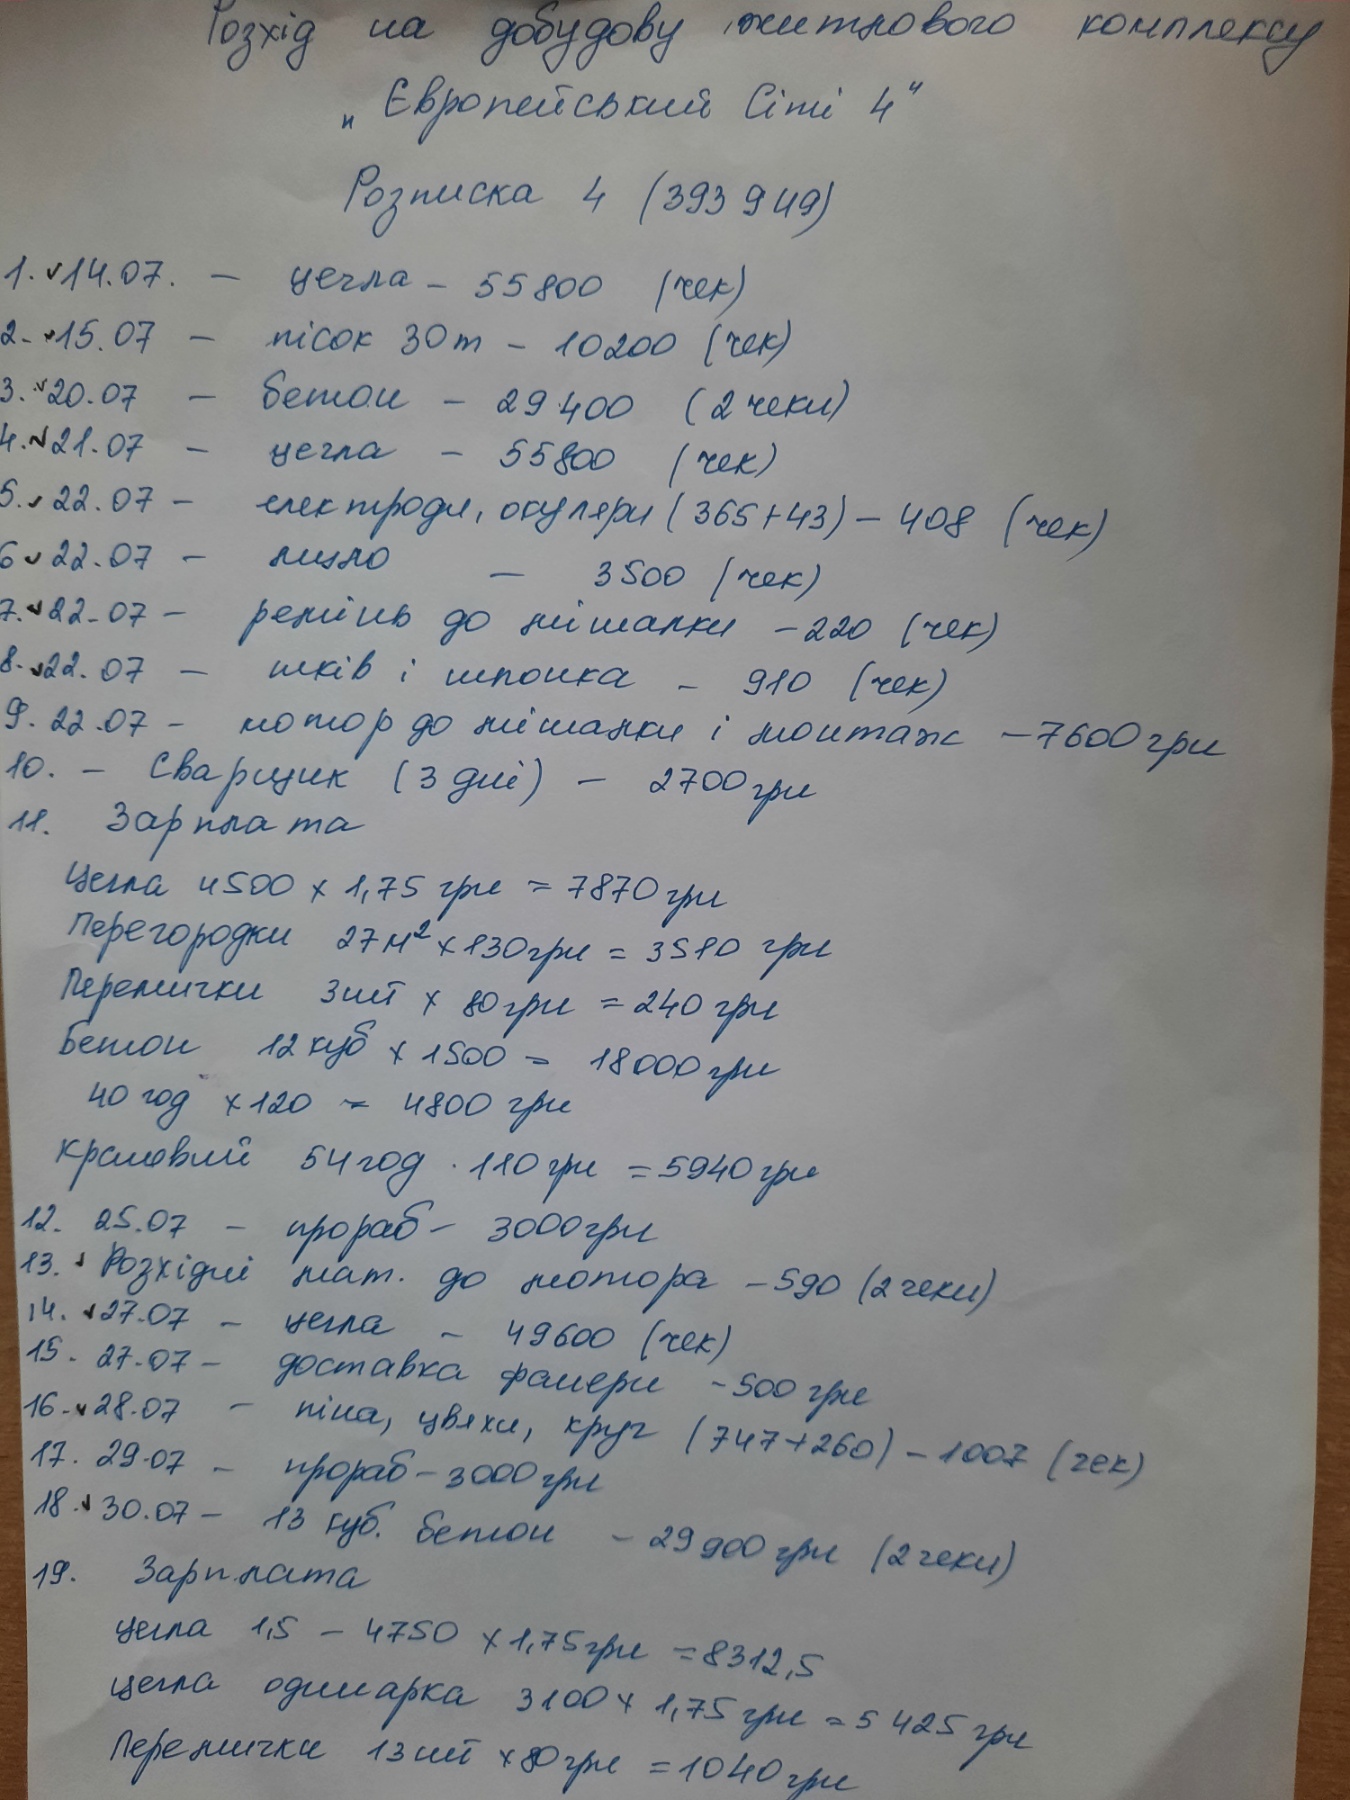 Розхід на добудову житлового комплексу
„Європейський Сіті 4"
Розписка 4 (393 949)
1. ✓14.07. – цегла – 55800 (чек)
2. ✓15.07 – пісок 30т – 10200 (чек)
3. ✓20.07 – бетон – 29400 (2 чеки)
4. ✓21.07 – цегла – 55800 (чек)
5. ✓22.07 – електроди, окуляри (365+43) – 408 (чек)
6 ✓22.07 – мило – 3500 (чек)
7. ✓22.07 – ремінь до мішалки – 220 (чек)
8. ✓22.07 – шків і шпонка – 910 (чек)
9. 22.07 – мотор до мішалки і монтаж – 7600 грн
10. – Сварщик (3 дні) – 2700 грн
11. Зарплата
Цегла 4500 × 1,75 грн = 7870 грн
Перегородки 27м² × 130 грн = 3510 грн
Перемички 3шт × 80 грн = 240 грн
Бетон 12 куб × 1500 = 18000 грн
40 год × 120 = 4800 грн
Крановий 54 год · 110 грн = 5940 грн
12. 25.07 – прораб – 3000 грн
13. ✓ Розхідні мат. до мотора – 590 (2 чеки)
14. ✓27.07 – цегла – 49600 (чек)
15. 27.07 – доставка фанери – 500 грн
16. ✓28.07 – піна, цвяхи, круг (747+260) – 1007 (чек)
17. 29.07 – прораб – 3000 грн
18. ✓30.07 – 13 куб. бетон – 29900 грн (2 чеки)
19. Зарплата
цегла 1,5 – 4750 × 1,75 грн = 8312,5
цегла одинарка 3100 × 1,75 грн = 5425 грн
Перемички 13 шт × 80 грн = 1040 грн